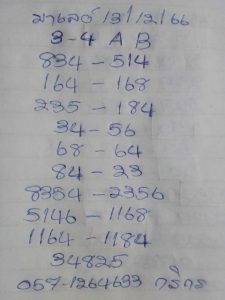 มาเลย์ 13/12/66
3-4 A B
834 - 514
164 - 168
235 - 184
34 - 56
68 - 64
84 - 23
8354 - 2356
5146 - 1168
1164 - 1184
34825
057-1264633